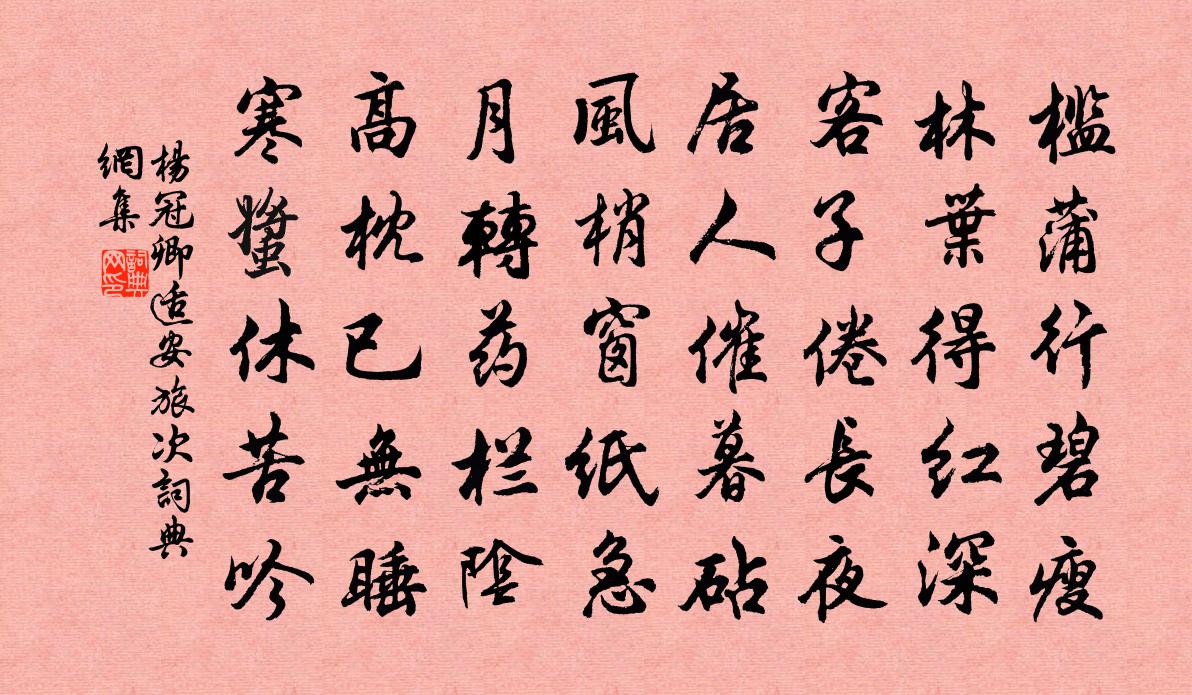 槛蒲行碧瘦
林葉得红深
客子倦長夜
居人催暮砧
風梢窗紙急
月轉药栏陰
高枕已無睡
寒螿休苦吟
楊冠卿适安旅次詞典
網集
詞典
网印